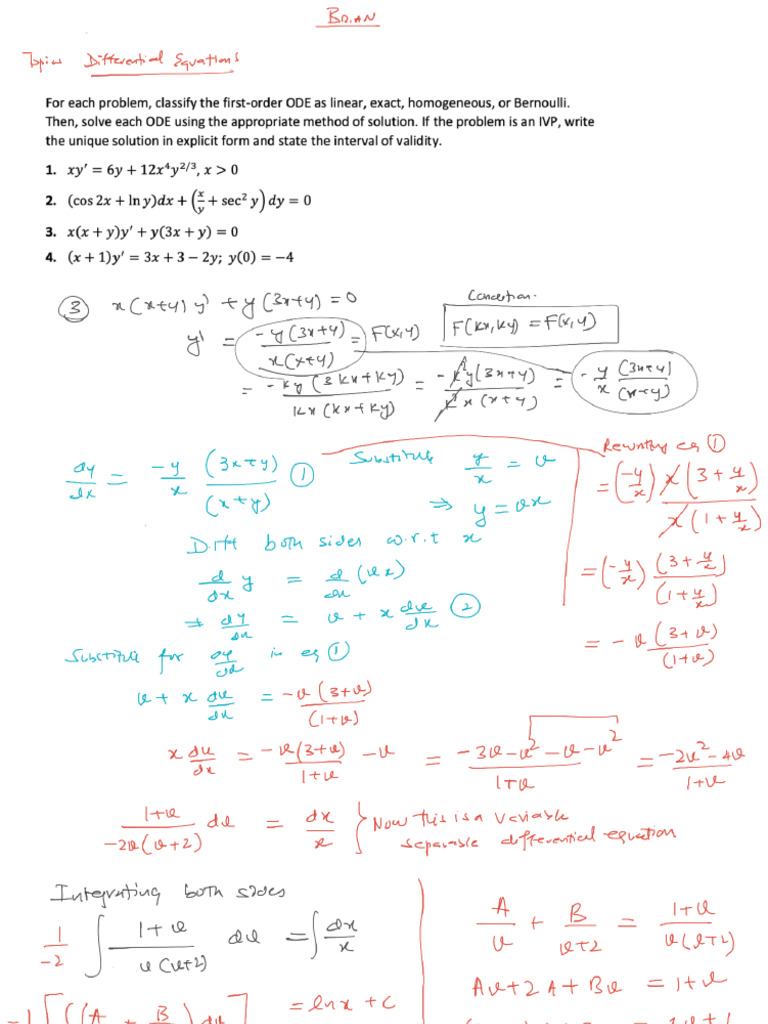 BRIAN
Topic:- Differential Equations
For each problem, classify the first-order ODE as linear, exact, homogeneous, or Bernoulli.
Then, solve each ODE using the appropriate method of solution. If the problem is an IVP, write
the unique solution in explicit form and state the interval of validity.
1. xy′ = 6y + 12x⁴y^{2/3}, x > 0
2. (cos 2x + ln y)dx + (x/y + sec² y) dy = 0
3. x(x + y)y′ + y(3x + y) = 0
4. (x + 1)y′ = 3x + 3 − 2y; y(0) = −4
③ x(x+y) y' + y(3x+y) = 0
Condition.
y' = -y(3x+y) / x(x+y) = F(x,y)
F(kx,ky) = F(x,y)
= -ky(3kx+ky) / kx(kx+ky) = -k²y(3x+y) / k²x(x+y) = -y/x (3x+y)/(x+y)
dy/dx = -y/x (3x+y)/(x+y) ①
Substitute y/x = v
⇒ y = vx
Diff both sides w.r.t x
d/dx y = d/dx (vx)
⇒ dy/dx = v + x dv/dx ②
Substitute for dy/dx in eq ①
Rewriting eq ①
= (-y/x) x(3 + y/x) / x(1 + y/x)
= (-y/x) (3 + y/x) / (1 + y/x)
= -v(3+v) / (1+v)
v + x dv/dx = -v(3+v) / (1+v)
x dv/dx = -v(3+v) / 1+v - v = -3v-v²-v-v² / 1+v = -2v²-4v / 1+v
1+v / -2v(v+2) dv = dx/x } Now this is a variable
separable differential equation
Integrating both sides
1/-2 ∫ 1+v / v(v+2) dv = ∫ dx/x
A/v + B/v+2 = 1+v / v(v+2)
Av+2A+Bv = 1+v
= ln x + c